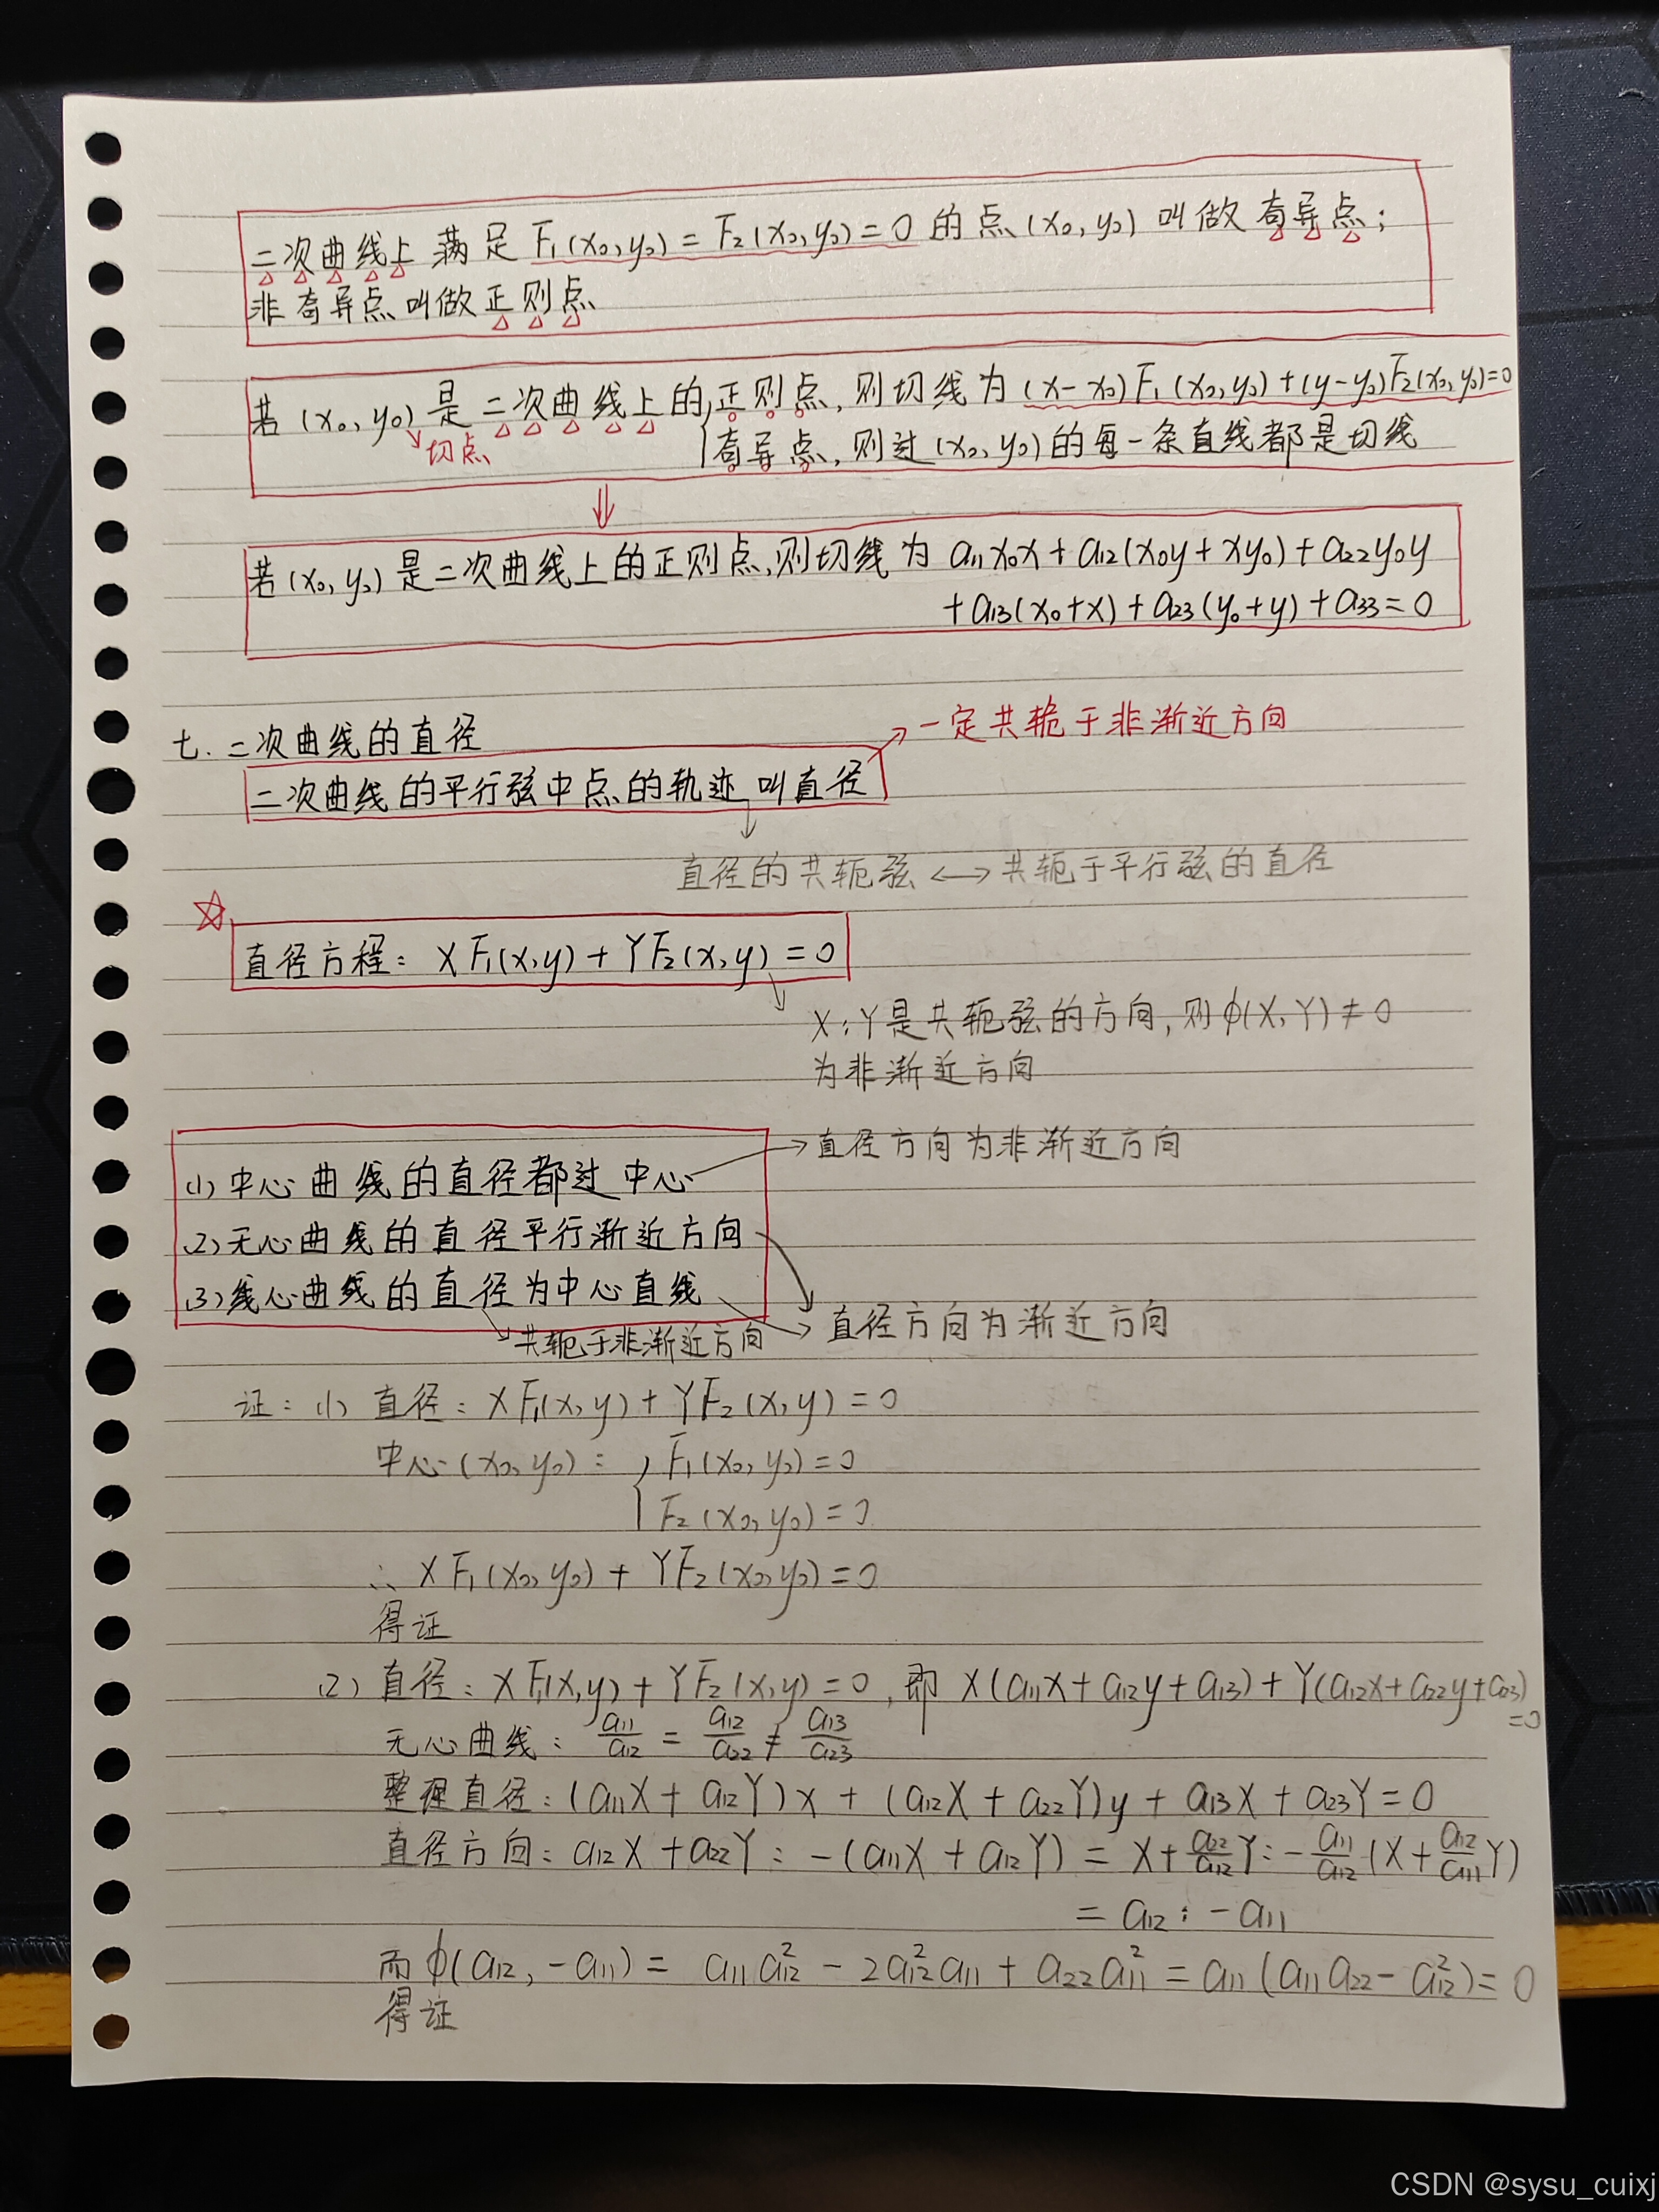 二次曲线上满足 F₁(x₀,y₀)=F₂(x₀,y₀)=0 的点(x₀,y₀) 叫做奇异点;
非奇异点叫做正则点
若(x₀,y₀)是二次曲线上的{正则点,则切线为(x-x₀)F₁(x₀,y₀)+(y-y₀)F₂(x₀,y₀)=0
切点
奇异点,则过(x₀,y₀)的每一条直线都是切线
⇓
若(x₀,y₀)是二次曲线上的正则点,则切线为 a₁₁x₀x+a₁₂(x₀y+xy₀)+a₂₂y₀y
+a₁₃(x₀+x)+a₂₃(y₀+y)+a₃₃=0
七.二次曲线的直径
→一定共轭于非渐近方向
二次曲线的平行弦中点的轨迹叫直径
直径的共轭弦 ⟷ 共轭于平行弦的直径
☆
直径方程: XF₁(x,y)+YF₂(x,y)=0
X:Y是共轭弦的方向,则φ(X,Y)≠0
为非渐近方向
(1)中心曲线的直径都过中心 →直径方向为非渐近方向
(2)无心曲线的直径平行渐近方向
(3)线心曲线的直径为中心直线 →直径方向为渐近方向
→共轭于非渐近方向
证:(1) 直径: XF₁(x,y)+YF₂(x,y)=0
中心(x₀,y₀): { F₁(x₀,y₀)=0
F₂(x₀,y₀)=0
∴ XF₁(x₀,y₀)+YF₂(x₀,y₀)=0
得证
(2) 直径: XF₁(x,y)+YF₂(x,y)=0,即 X(a₁₁x+a₁₂y+a₁₃)+Y(a₁₂x+a₂₂y+a₂₃)
=0
无心曲线: a₁₁/a₁₂ = a₁₂/a₂₂ ≠ a₁₃/a₂₃
整理直径:(a₁₁X+a₁₂Y)x+(a₁₂X+a₂₂Y)y+a₁₃X+a₂₃Y=0
直径方向: a₁₂X+a₂₂Y:-(a₁₁X+a₁₂Y)=X+a₂₂/a₁₂Y:-a₁₁/a₁₂(X+a₁₂/a₁₁Y)
=a₁₂:-a₁₁
而φ(a₁₂,-a₁₁)= a₁₁a₁₂²-2a₁₂²a₁₁+a₂₂a₁₁²=a₁₁(a₁₁a₂₂-a₁₂²)=0
得证
CSDN @sysu_cuixj